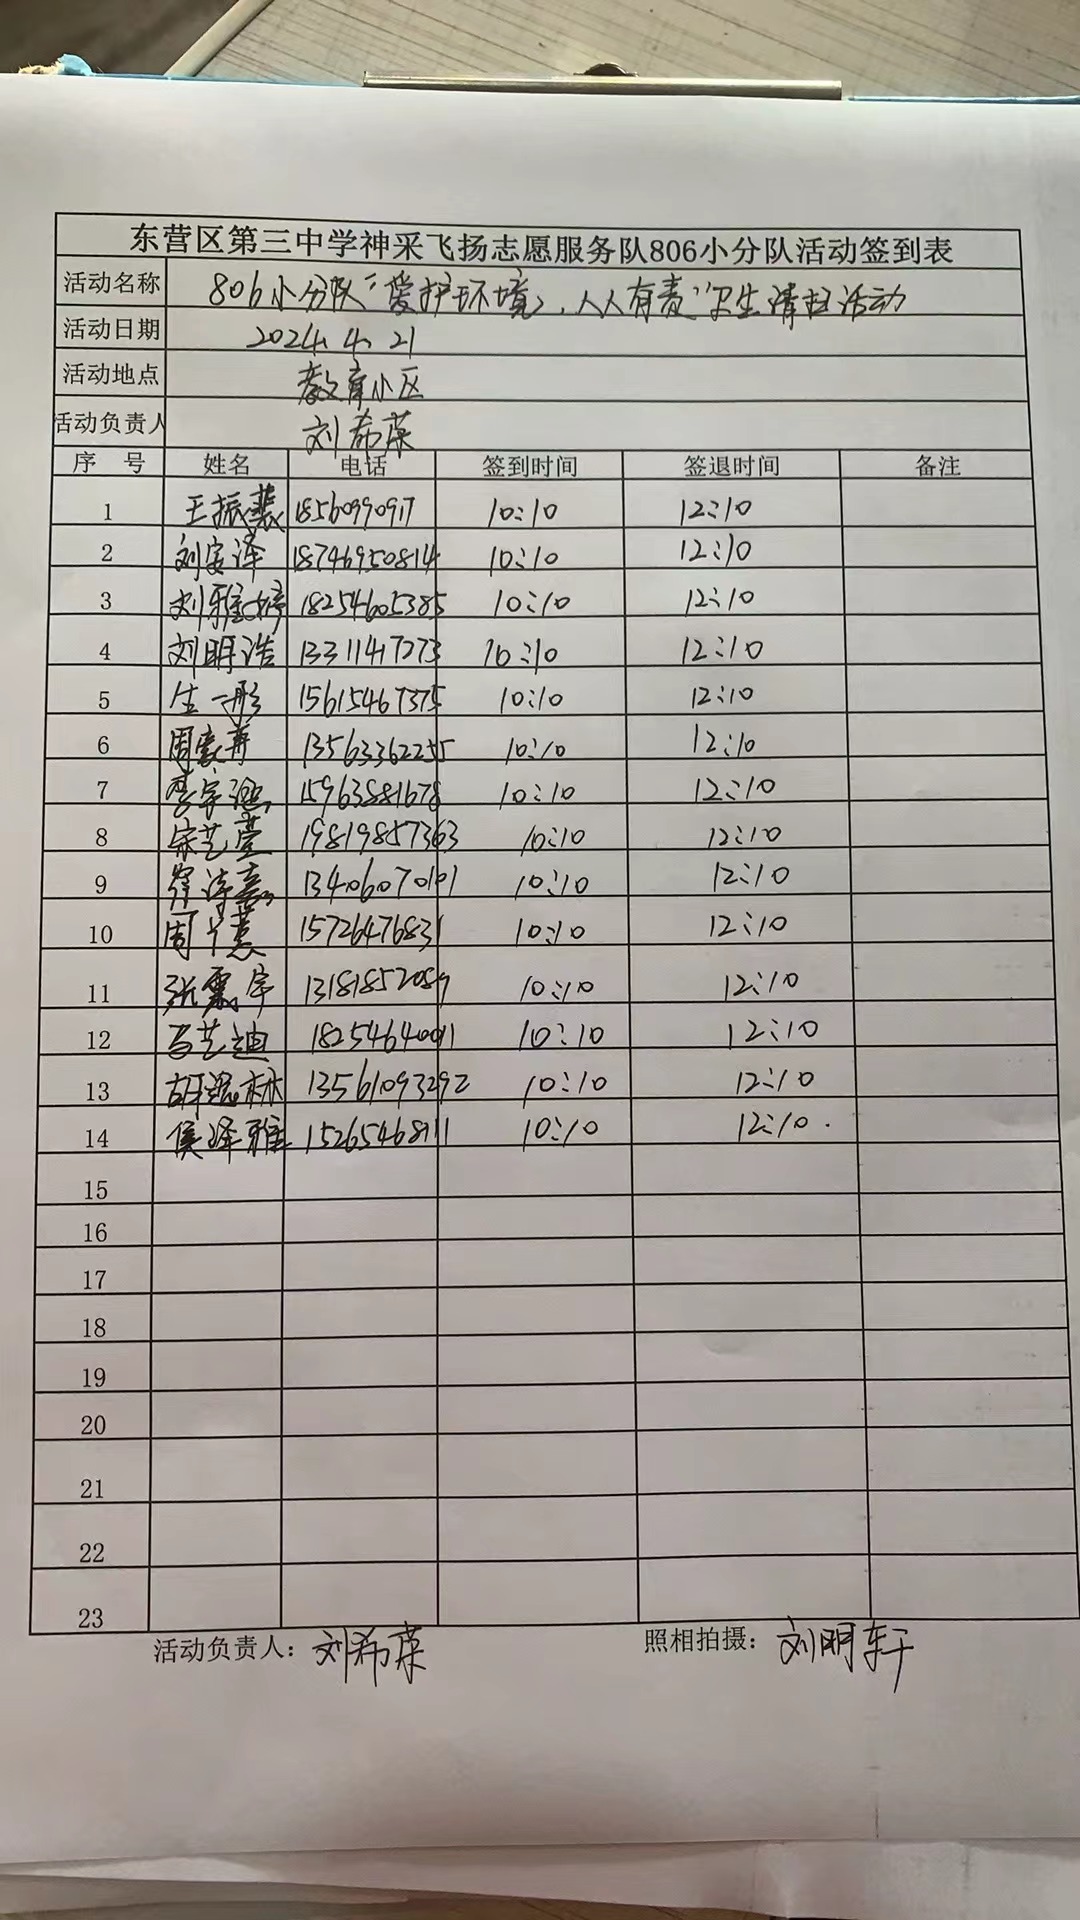 东营区第三中学神采飞扬志愿服务队806小分队活动签到表
活动名称 806小分队“爱护环境,人人有责”卫生清扫活动
活动日期 2024.4.21
活动地点 教育小区
活动负责人 刘希荣
序号 姓名 电话 签到时间 签退时间 备注
1 王振 18560990917 10:10 12:10
2 刘安泽 18746950814 10:10 12:10
3 刘雅婷 18254605385 10:10 12:10
4 刘明浩 13311417273 10:10 12:10
5 生一彤 15615467375 10:10 12:10
6 周 13563362255 10:10 12:10
7 李宇 15963881678 10:10 12:10
8 宋艺萱 19819857363 10:10 12:10
9 13406070101 10:10 12:10
10 周 15726476831 10:10 12:10
11 张 宇 13181852089 10:10 12:10
12 艺迪 18254640011 10:10 12:10
13 胡 林 13561093292 10:10 12:10
14 侯泽雅 15265468111 10:10 12:10.
15
16
17
18
19
20
21
22
23
活动负责人：刘希荣 照相拍摄：刘明轩